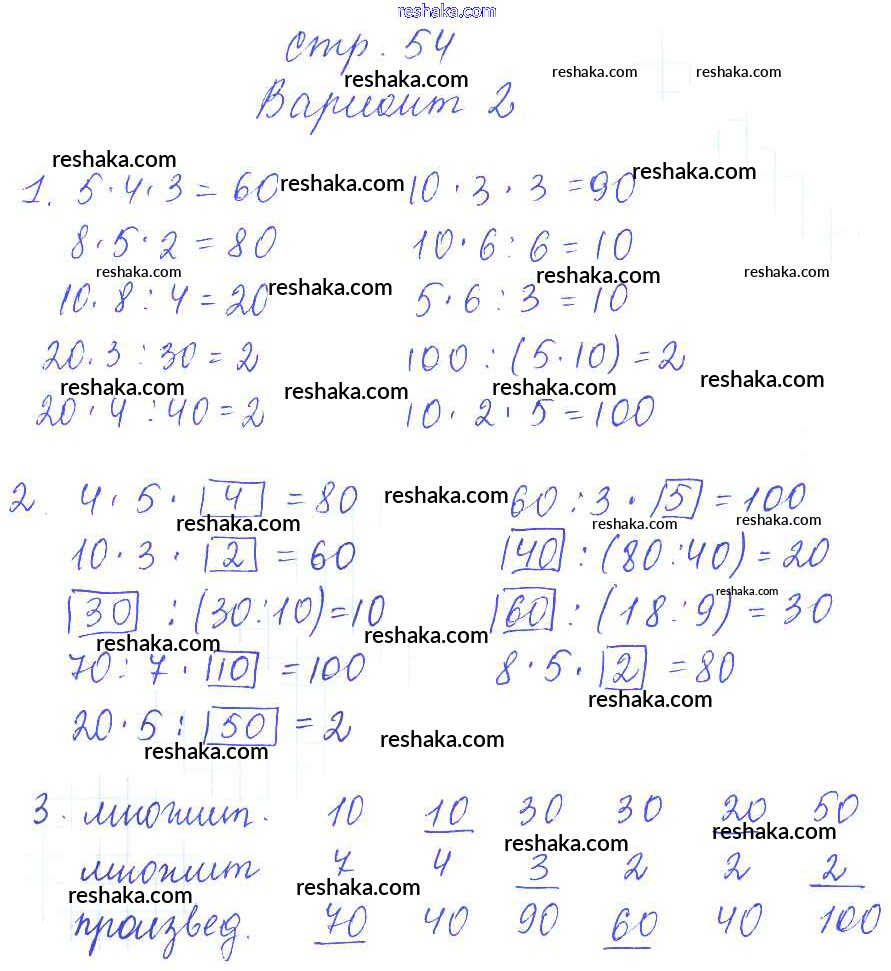 reshaka.com
стр. 54
reshaka.com reshaka.com reshaka.com
Вариант 2
reshaka.com
1. 5·4·3 = 60 reshaka.com 10·3·3 = 90 reshaka.com
8·5·2 = 80 10·6:6 = 10
reshaka.com reshaka.com reshaka.com reshaka.com
10·8:4 = 20 5·6:3 = 10
20·3:30 = 2 100:(5·10) = 2
reshaka.com reshaka.com reshaka.com reshaka.com
20·4:40 = 2 10·2·5 = 100
2. 4·5·4 = 80 reshaka.com 60:3·5 = 100
reshaka.com reshaka.com reshaka.com
10·3·2 = 60 40:(80:40) = 20
reshaka.com
30:(30:10) = 10 60:(18:9) = 30
reshaka.com reshaka.com
70:7·10 = 100 8·5·2 = 80
reshaka.com
20·5:50 = 2
reshaka.com reshaka.com
3. множит. 10 10 30 30 20 50
reshaka.com reshaka.com
множит 7 4 3 2 2 2
reshaka.com reshaka.com
произвед. 70 40 90 60 40 100